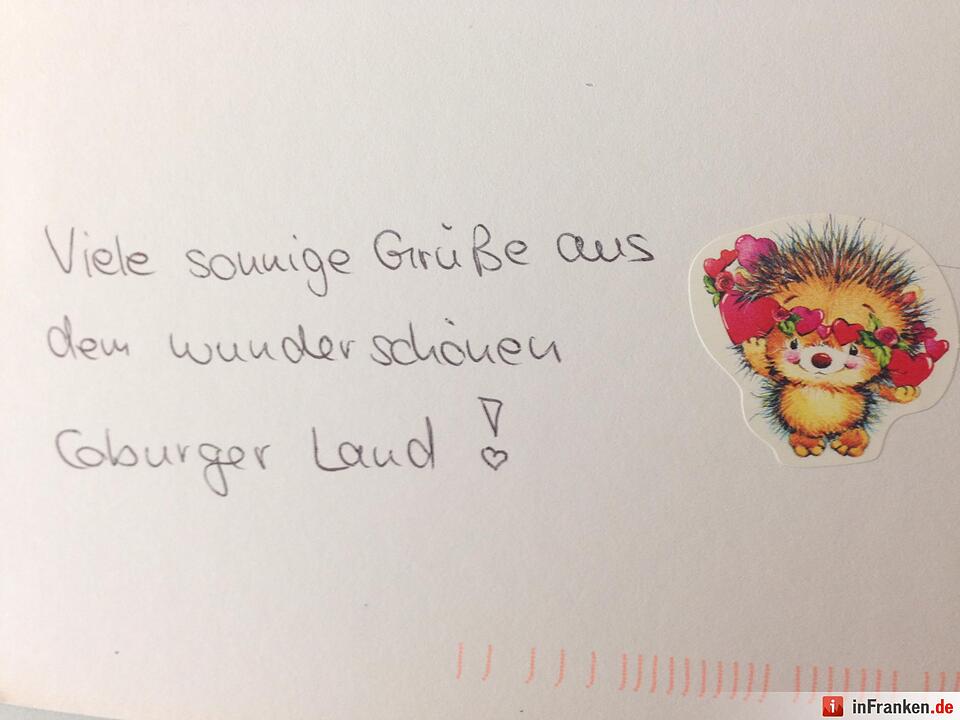 Viele sonnige Grüße aus
dem wunderschönen
Coburger Land !
inFranken.de